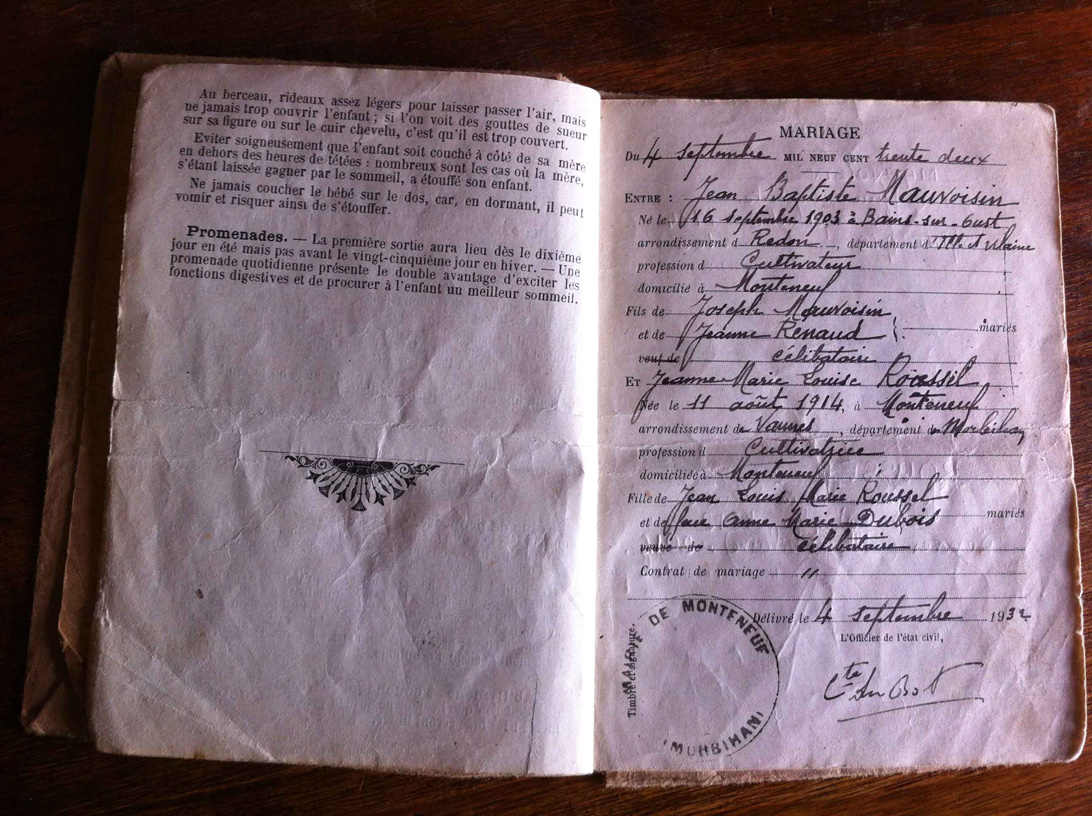 Au berceau, rideaux assez légers pour laisser passer l'air, mais
ne jamais trop couvrir l'enfant ; si l'on voit des gouttes de sueur
sur sa figure ou sur le cuir chevelu, c'est qu'il est trop couvert.
Eviter soigneusement que l'enfant soit couché à côté de sa mère
en dehors des heures de tétées : nombreux sont les cas où la mère,
s'étant laissée gagner par le sommeil, a étouffé son enfant.
Ne jamais coucher le bébé sur le dos, car, en dormant, il peut
vomir et risquer ainsi de s'étouffer.
Promenades. — La première sortie aura lieu dès le dixième
jour en été mais pas avant le vingt-cinquième jour en hiver. — Une
promenade quotidienne présente le double avantage d'exciter les
fonctions digestives et de procurer à l'enfant un meilleur sommeil.
MARIAGE
Du 4 septembre MIL NEUF CENT trente deux
ENTRE : Jean Baptiste Mauvoisin
Né le 16 septembre 1903 à Bains-sur-Oust
arrondissement d Redon, département d'Ille et Vilaine
profession d Cultivateur
domicilié à Monteneuf
Fils de Joseph Mauvoisin
et de Jeanne Renaud mariés
veuf de célibataire
ET Jeanne Marie Louise Roussel
Née le 11 août 1914, à Monteneuf
arrondissement de Vannes, département du Morbihan
profession d Cultivatrice
domiciliée à Monteneuf
Fille de Jean Louis Marie Roussel
et de feue Anne Marie Dubois mariés
veuve de célibataire
Contrat de mariage "
Délivré le 4 septembre 1932
L'Officier de l'état civil,
Cte du Bot
Timbre et signature.
MAIRIE DE MONTENEUF
(MORBIHAN)